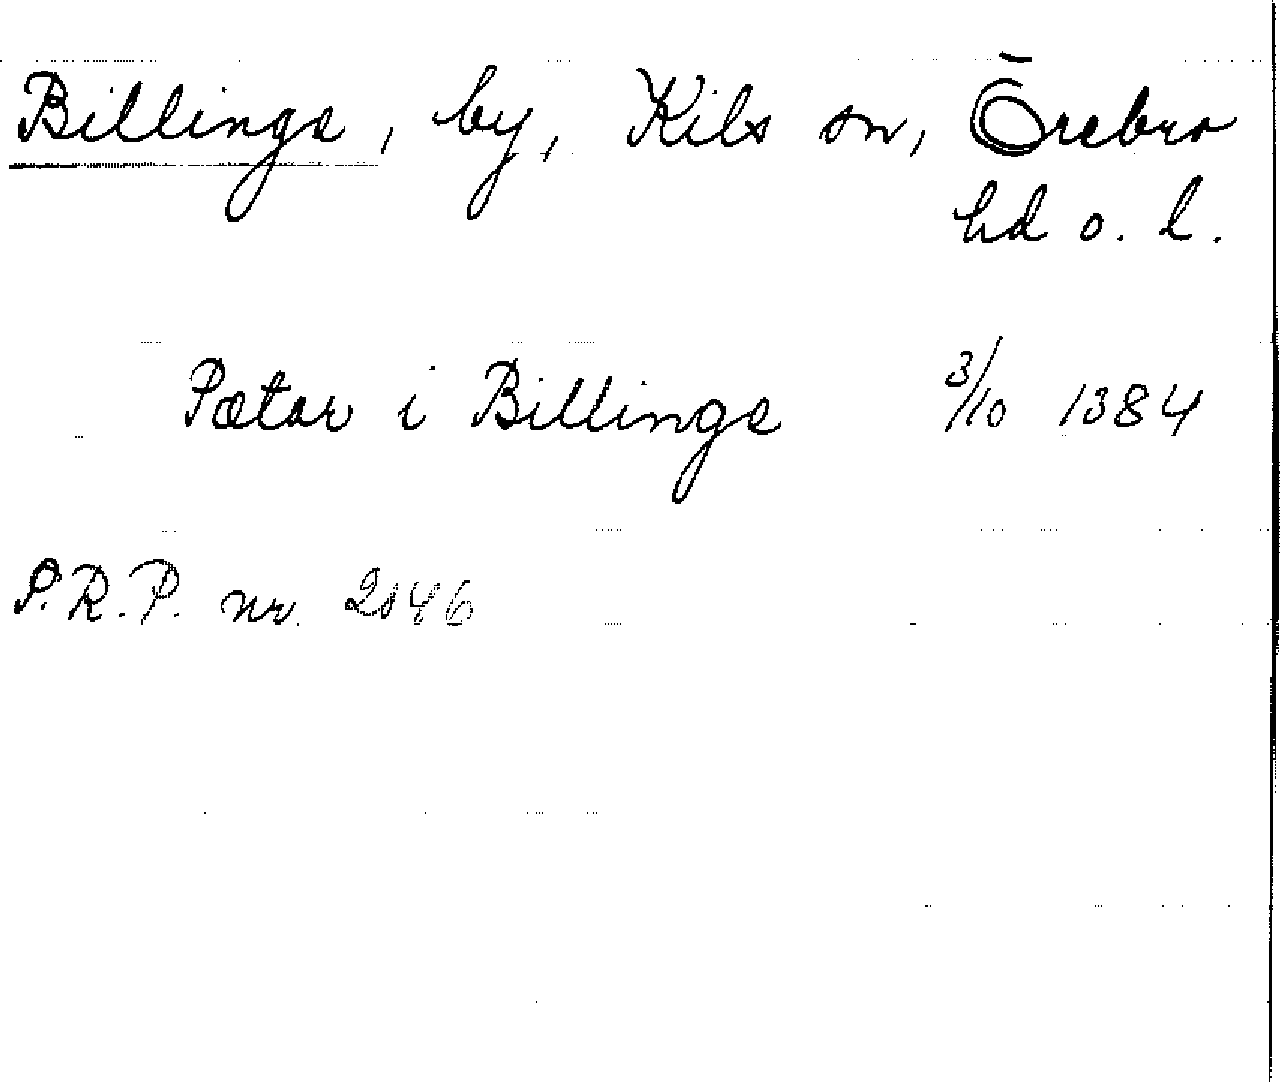 Billinge, by, Kils sn, Örebro
hd o. l.
Pætar i Billinge 3/10 1384
S.R.P. nr.